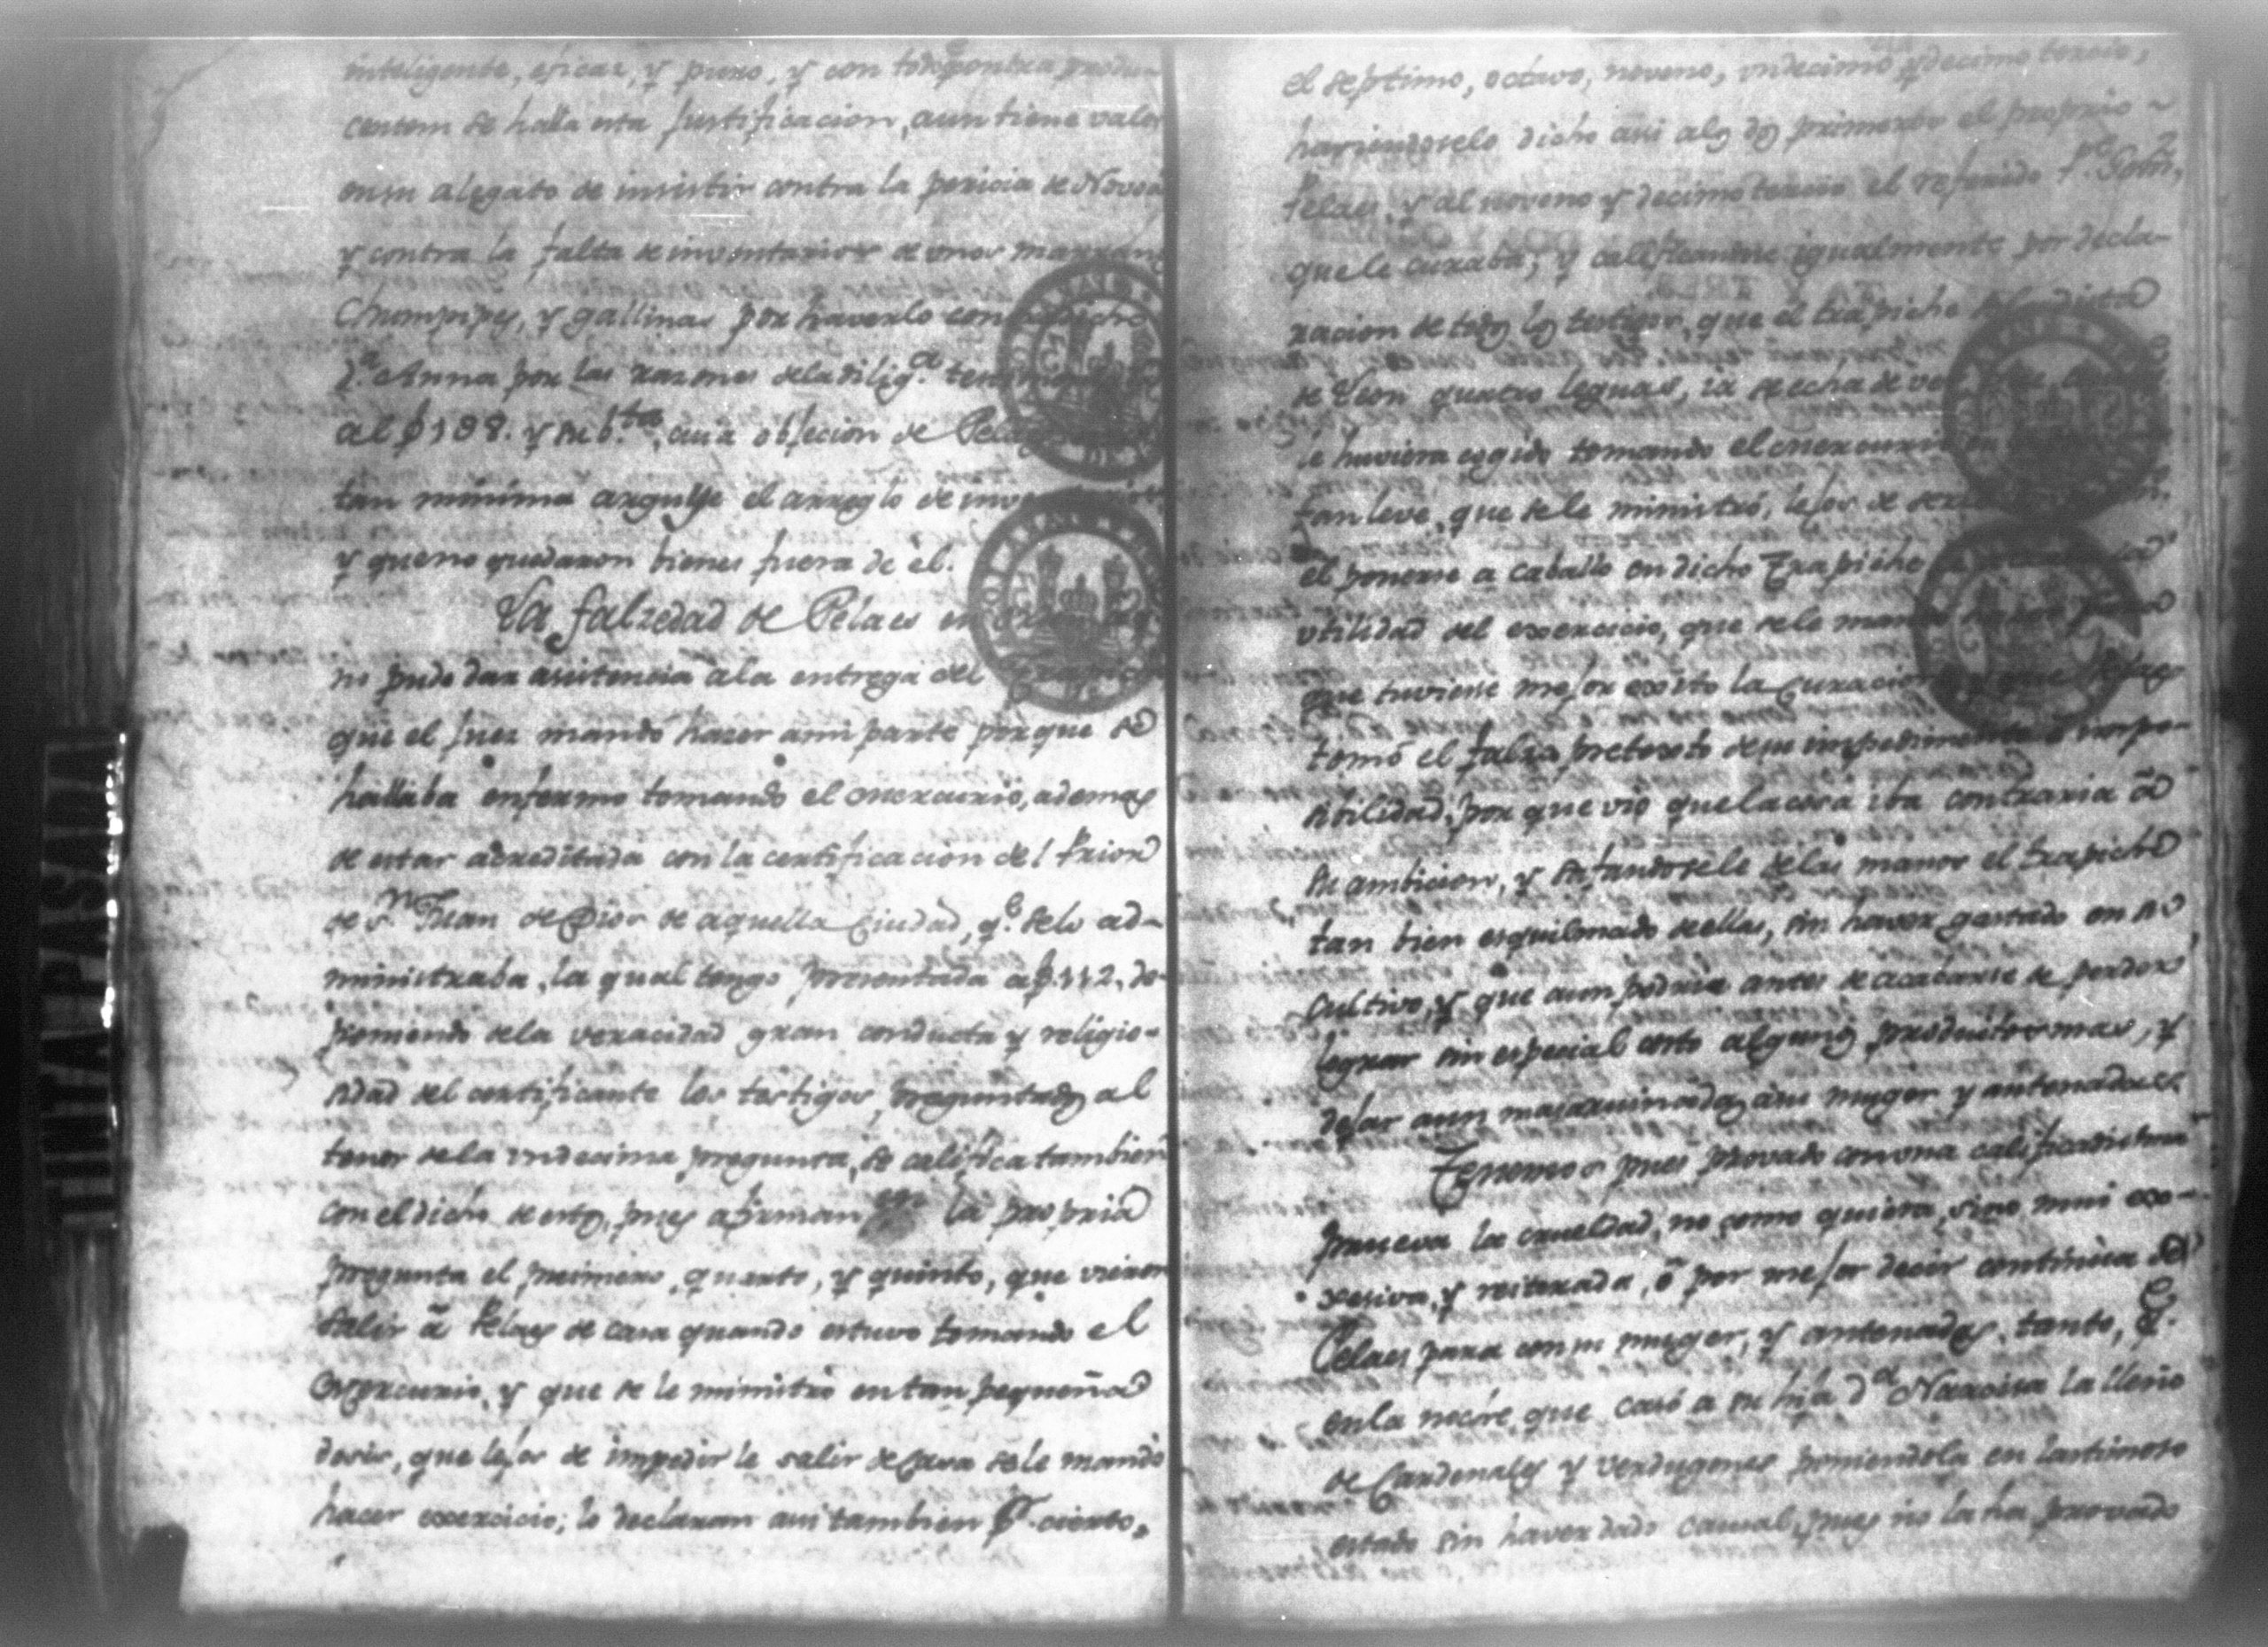 inteligente, eficaz, y puro, y con todo contra produ-
centem se halla esta justificacion, aun tiene valor
en su alegato de insistir contra la pericia de Novoa
y contra la falta de inventarios de unos marranos
Chumpipes, y gallinas por haverlo
D.ª Anna por las razones dela dilig.ª
al f 108. y sub.tes, cuia objecion de Pelaes
tan minima arguye el arreglo de
y que no quedaron bienes fuera de èl.
La falzedad de Pelaes en
no pudo dar asistencia ala entrega del
que el Juez mandò hazer a mi parte porque se
hallaba enfermo tomando el mercurio, ademas
de estar acreditada con la certificacion del Prior
de S.n Juan de Dios de aquella Ciudad, q.e selo ad-
ministraba, la qual tengo presentada a f. 112, de-
poniendo dela veracidad gran conducta y religio-
sidad del certificante los testigos, preguntados al
tenor dela undecima pregunta, se califica tambien
con el dicho de estos, pues afirman la propria
pregunta el primero, quarto, y quinto, que vieron
salir â Pelaes de casa quando estuvo tomando el
Mercurio, y que se le ministrò en tan pequeña
dosis, que lejos de impedirle salir de Casa sele mandò
hacer exercicio; lo declaran assi tambien p.r cierto,
el septimo, octavo, noveno, undecimo y decimo tercio,
haviendoselo dicho assi alos dos primeros el proprio
Pelaes, y al noveno y decimo tercio el referido P.e
que le curaba; y calificandose igualmente por decla-
racion de todos los testigos, que el trapiche dista
de Leon quatro leguas, ia se echa de ver
le huviera tomando el mercurio
tan leve, que sele ministrò, lejos de
el ponerse a caballo en dicho Trapiche
utilidad del exercicio, que sele mandò
que tuviese mejor exito la Curacion
tomò el falzo pretexto de su impedimento ô impo-
sibilidad, por que vio que la cosa iba contraria â
su ambicion, y saltandosele delas manos el trapiche
tan bien esquilmado de ellas, sin haver gastado en su
cultivo, y que aun podria antes de acabarse de perder
lograr sin especial costo algunos productos mas, y
dejar aun mas arruinados a su muger y antenadas
Tenemos pues provado con una calificadissima
prueva la crueldad, no como quiera, sino mui exe-
cesiva, y reiterada, ô por mejor decir continua de
Pelaes para con su muger, y antenadas, tanto, q.e
en la noche, que casò a su hija D.ª Narcisa la lleno
de Cardenales y verdugones poniendola en lastimoso
estado sin haver dado causal, pues no la ha provado